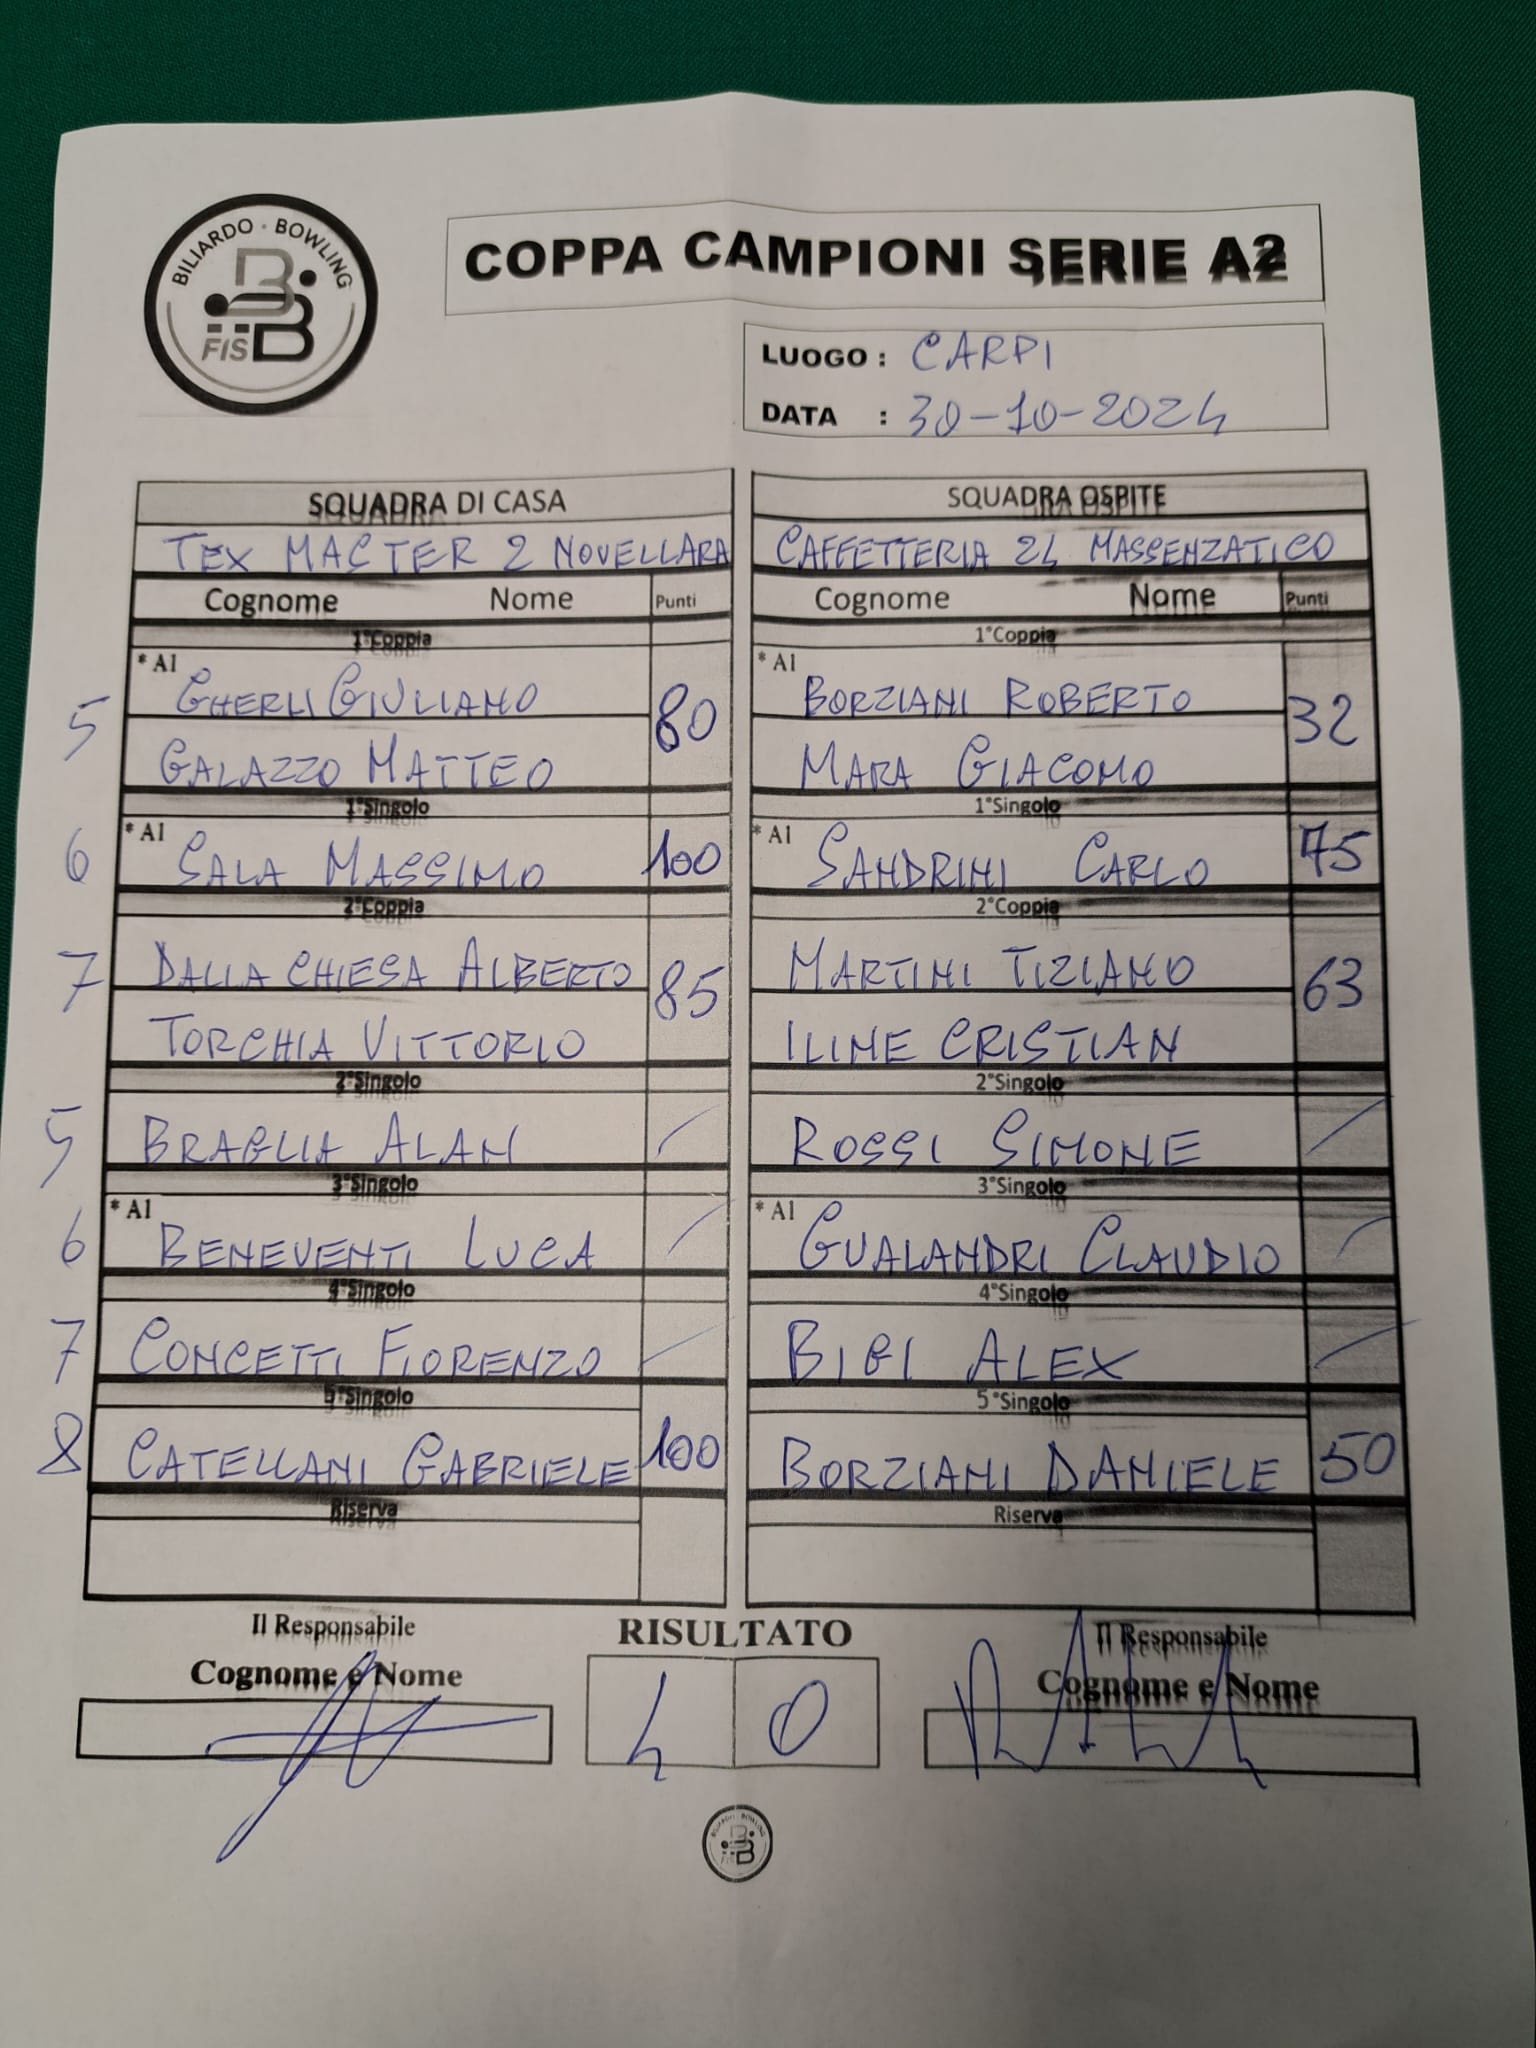 BILIARDO · BOWLING
FISBB
COPPA CAMPIONI SERIE A2
LUOGO : CARPI
DATA : 30-10-2024
SQUADRA DI CASA SQUADRA OSPITE
TEX MASTER 2 NOVELLARA CAFFETTERIA 24 MASSENZATICO
Cognome Nome Punti Cognome Nome Punti
1°Coppia 1°Coppia
5 * A1 GHERLI GIULIANO 80 * A1 BORZIANI ROBERTO 32
GALAZZO MATTEO MARA GIACOMO
1°Singolo 1°Singolo
6 * A1 SALA MASSIMO 100 * A1 SANDRINI CARLO 75
2°Coppia 2°Coppia
7 DALLA CHIESA ALBERTO 85 MARTINI TIZIANO 63
TORCHIA VITTORIO ILINE CRISTIAN
2°Singolo 2°Singolo
5 BRAGLIA ALAN / ROSSI SIMONE /
3°Singolo 3°Singolo
6 * A1 BENEVENTI LUCA / * A1 GUALANDRI CLAUDIO /
4°Singolo 4°Singolo
7 CONCETTI FIORENZO / BIGI ALEX /
5°Singolo 5°Singolo
8 CATELLANI GABRIELE 100 BORZIANI DANIELE 50
Riserva Riserva
Il Responsabile RISULTATO Il Responsabile
Cognome e Nome Cognome e Nome
4 0